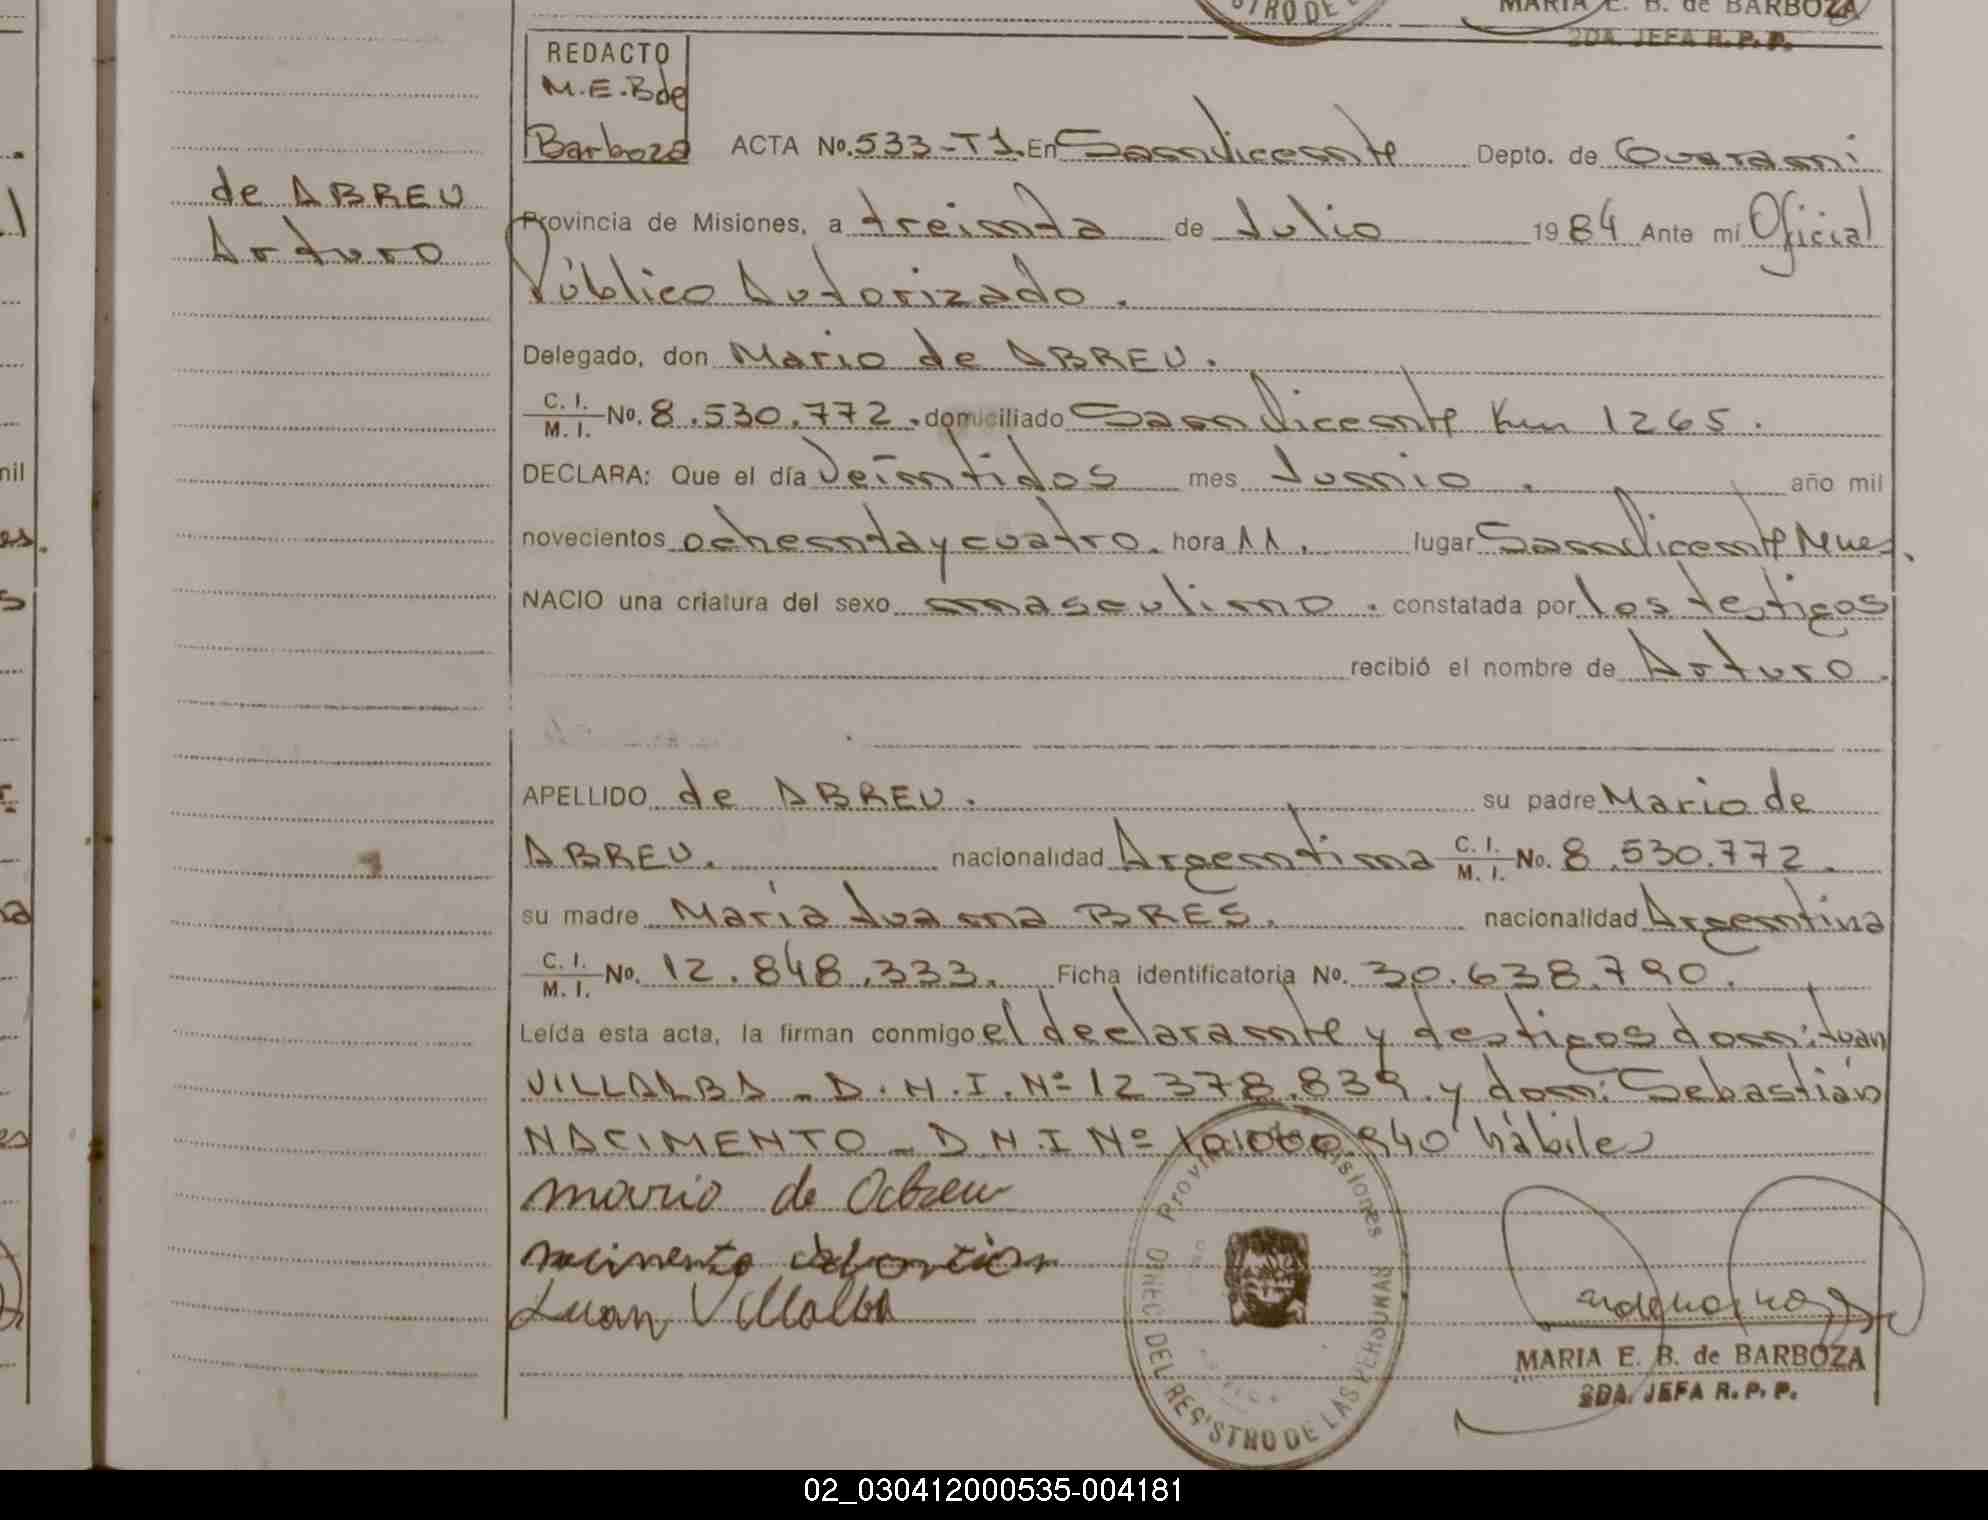 MARIA E. B. de BARBOZA
2DA. JEFA R. P. P.
REDACTO
M.E.B de
Barboza
ACTA No. 533-T1. En San Vicente Depto. de Guaraní
de ABREU
Arturo
Provincia de Misiones, a treinta de Julio 1984 Ante mí Oficial
Público Autorizado.
Delegado, don Mario de ABREU.
C. I. / M. I. No. 8.530.772. domiciliado San Vicente Km 1265.
DECLARA: Que el día Veintidos mes Junio. año mil
novecientos ochenta y cuatro. hora 11. lugar San Vicente Mnes.
NACIO una criatura del sexo masculino. constatada por los testigos
recibió el nombre de Arturo.
APELLIDO de ABREU. su padre Mario de
ABREU. nacionalidad Argentina C. I. / M. I. No. 8.530.772.
su madre María Juana BRES. nacionalidad Argentina
C. I. / M. I. No. 12.848.333. Ficha identificatoria No. 30.638.790.
Leída esta acta, la firman conmigo el declarante y testigos don: Juan
VILLALBA - D.N.I. Nº 12.378.839. y don: Sebastián
NACIMENTO - D.N.I Nº 940 hábiles
mario de Abreu
Juan Villalba
Provincia de Misiones
DIREC. DEL REGISTRO DE LAS PERSONAS
MARIA E. B. de BARBOZA
2DA. JEFA R. P. P.
02_030412000535-004181